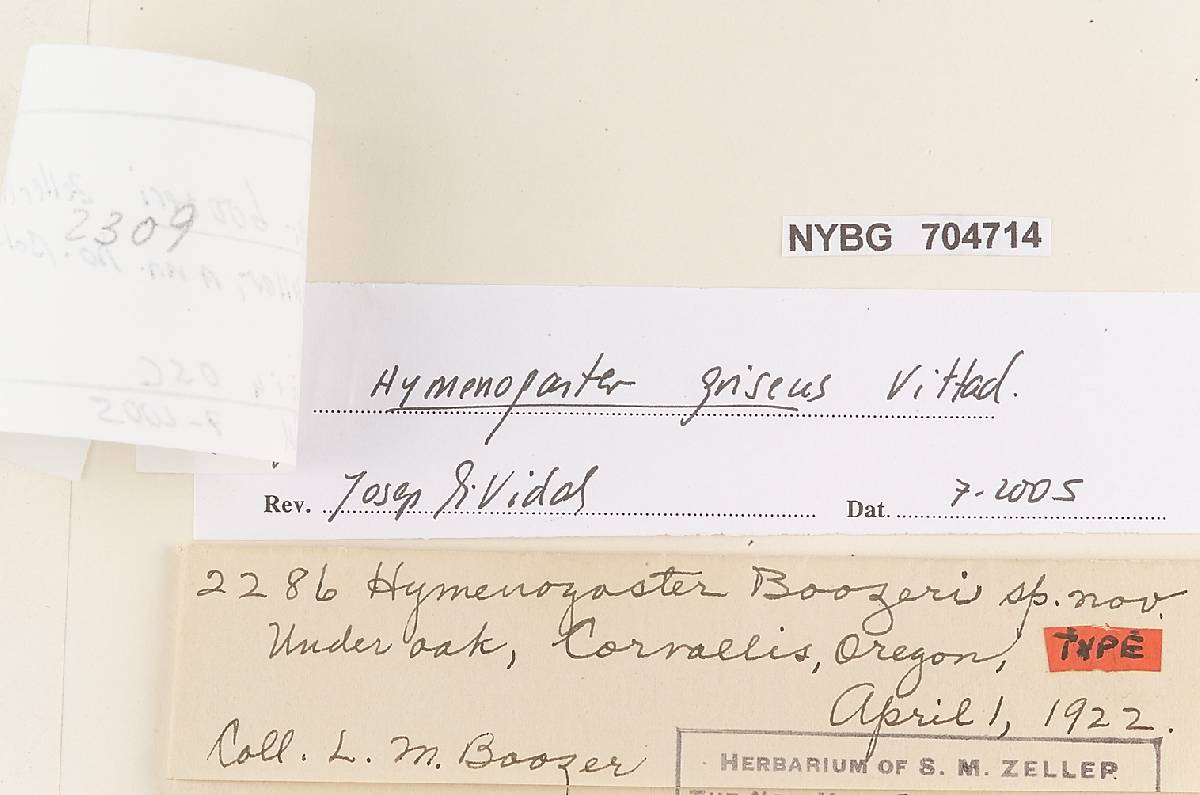 2309
NYBG 704714
Hymenogaster griseus Vittad.
Rev. Josep M. Vidal
Dat. 7-2005
2286 Hymenogaster Boozeri sp. nov.
Under oak, Corvallis, Oregon, TYPE
April 1, 1922.
Coll. L. M. Boozer
HERBARIUM OF S. M. ZELLER